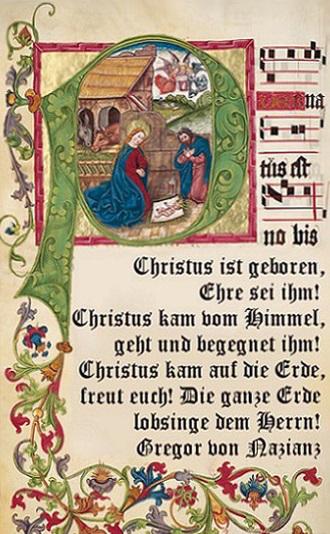 P
na
tus est
no bis
Christus ist geboren,
Ehre sei ihm!
Christus kam vom Himmel,
geht und begegnet ihm!
Christus kam auf die Erde,
freut euch! Die ganze Erde
lobsinge dem Herrn!
Gregor von Nazianz